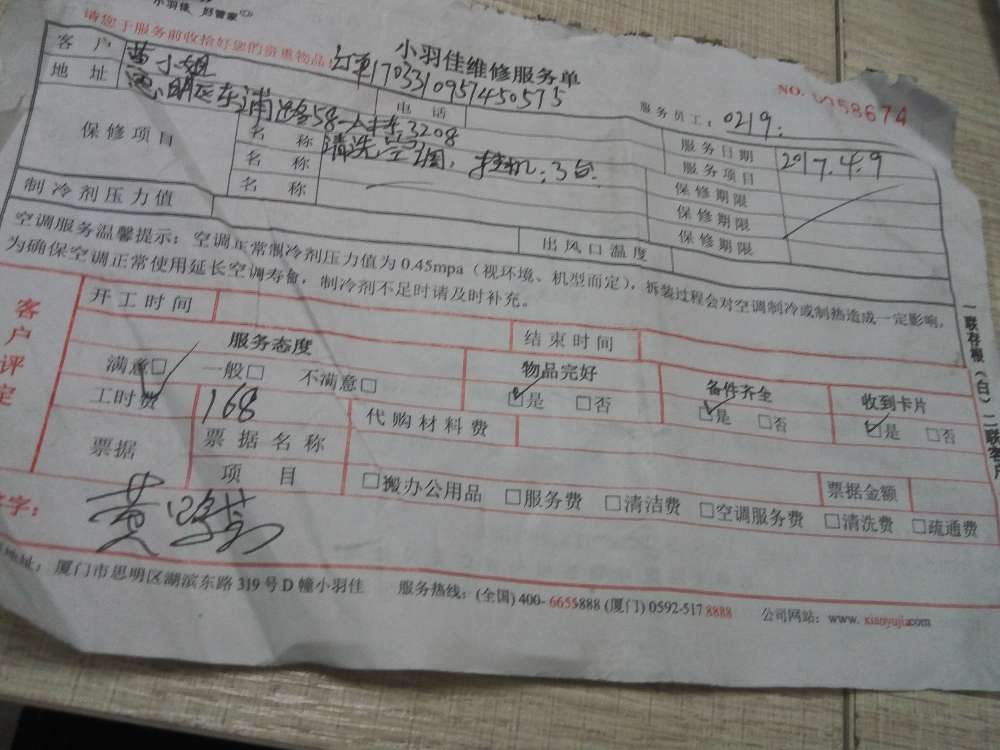 小羽佳 好管家
请您于服务前收拾好您的贵重物品!
小羽佳维修服务单
NO. 58674
订单1703310957450575
服务员工: 0219.
客户 黄小姐 电话 服务日期 2017.4.9
地址 思明区东浦路58 3208 服务项目
保修项目 名称 清洗空调,挂机:3台. 保修期限
名称 保修期限
名称 保修期限
制冷剂压力值 出风口温度
空调服务温馨提示:空调正常制冷剂压力值为0.45mpa(视环境、机型而定),拆装过程会对空调制冷或制热造成一定影响,
为确保空调正常使用延长空调寿命,制冷剂不足时请及时补充。
客户评定
开工时间 结束时间
服务态度 物品完好 备件齐全 收到卡片
满意☑ 一般□ 不满意□ ☑是 □否 ☑是 □否 ☑是 □否
工时费 168 代购材料费
票据 票据名称 票据金额
项目 □搬办公用品 □服务费 □清洁费 □空调服务费 □清洗费 □疏通费
字:
地址:厦门市思明区湖滨东路319号D幢小羽佳 服务热线:(全国)400-6655888 (厦门)0592-5178888 公司网站:www.xiaoyujia.com
一联存根(白)二联客户